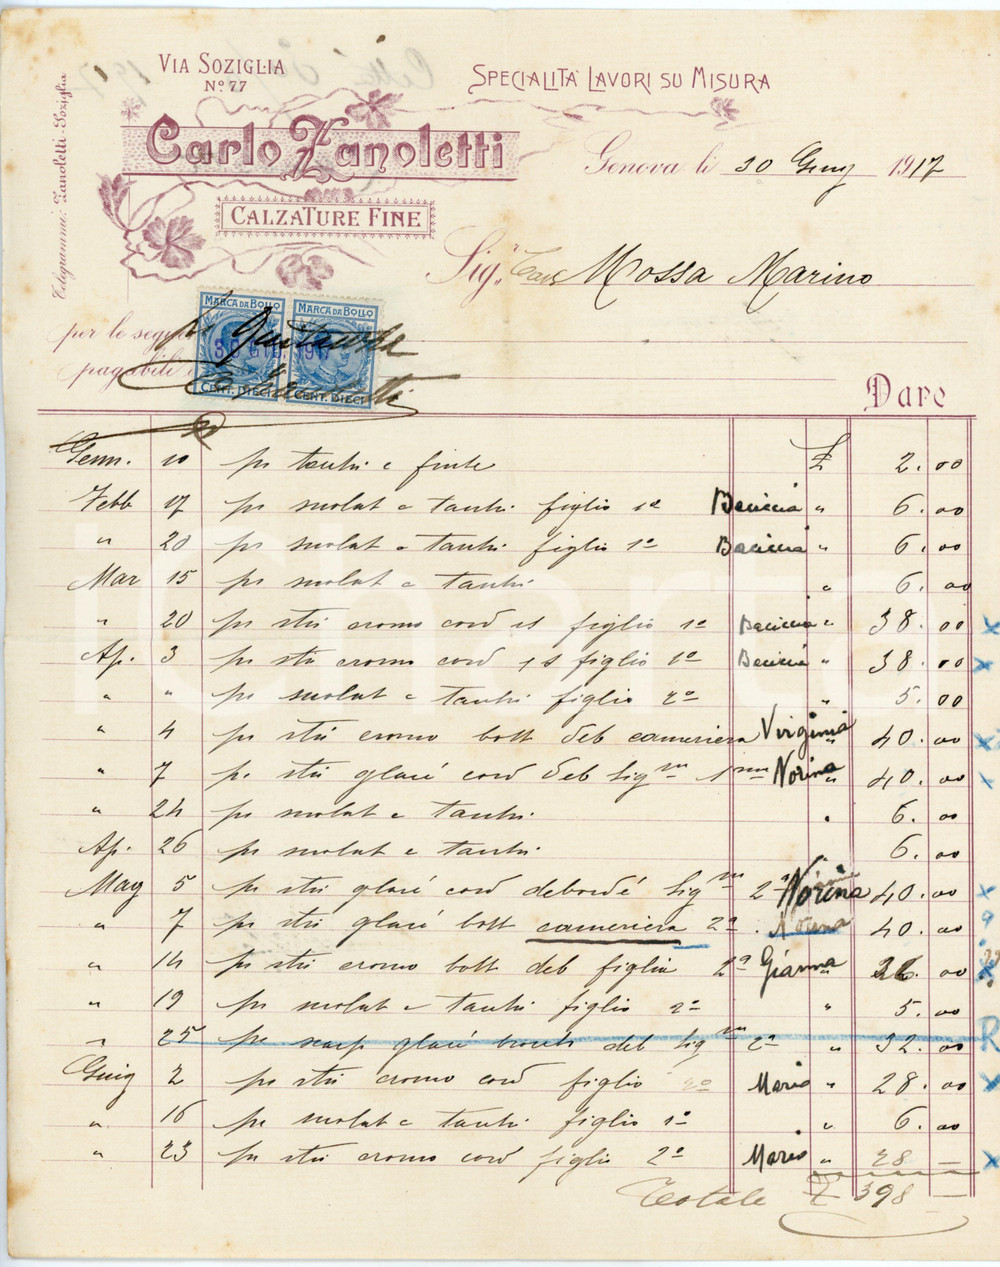 VIA SOZIGLIA
No. 77
SPECIALITÀ LAVORI SU MISURA
Telegrammi: Zanoletti-Soziglia
Carlo Zanoletti
CALZATURE FINE
Genova li 30 Giug 1917
Sig. Mossa Marino
MARCA DA BOLLO MARCA DA BOLLO
30 GIU. 1917
CENT. DIECI CENT. DIECI
per le segu
pagabili
Dare
Genn. 10 pr tacchi e finte £ 2.00
Febb 17 pr suolat e tacchi figlio 1º Baciccia " 6.00
" 20 pr suolat e tacchi figlio 1º Baciccia " 6.00
Mar 15 pr suolat e tacchi " 6.00
" 20 pr stiv cromo cord figlio 1º Baciccia " 38.00 x
Ap. 3 pr stiv cromo cord figlio 1º Baciccia " 38.00 x
" " pr suolat e tacchi figlio 2º " 5.00
" 4 pr stiv cromo bott deb cameriera Virginia " 40.00 x
" 7 pr stiv glacé cord deb sig.na Norina " 40.00 x
" 24 pr suolat e tacchi " 6.00
Ap. 26 pr suolat e tacchi 6.00
Mag 5 pr stiv glacé cord debordé sig.na 2ª Norina 40.00 x
" 7 pr stiv glacé bott cameriera 2ª Norina 40.00
" 14 pr stiv cromo bott deb figlia 2ª Gianna " 26.00 x
" 19 pr suolat e tacchi figlio 2º " 5.00
" 25 pr scarp glacé deb sig.na 2ª " 32.00 R
Giug 2 pr stiv cromo cord figlio 2º Mario " 28.00 x
" 16 pr suolat e tacchi figlio 1º " 6.00
" 23 pr stiv cromo cord figlio 2º Mario " 28 — x
Totale £ 398 —